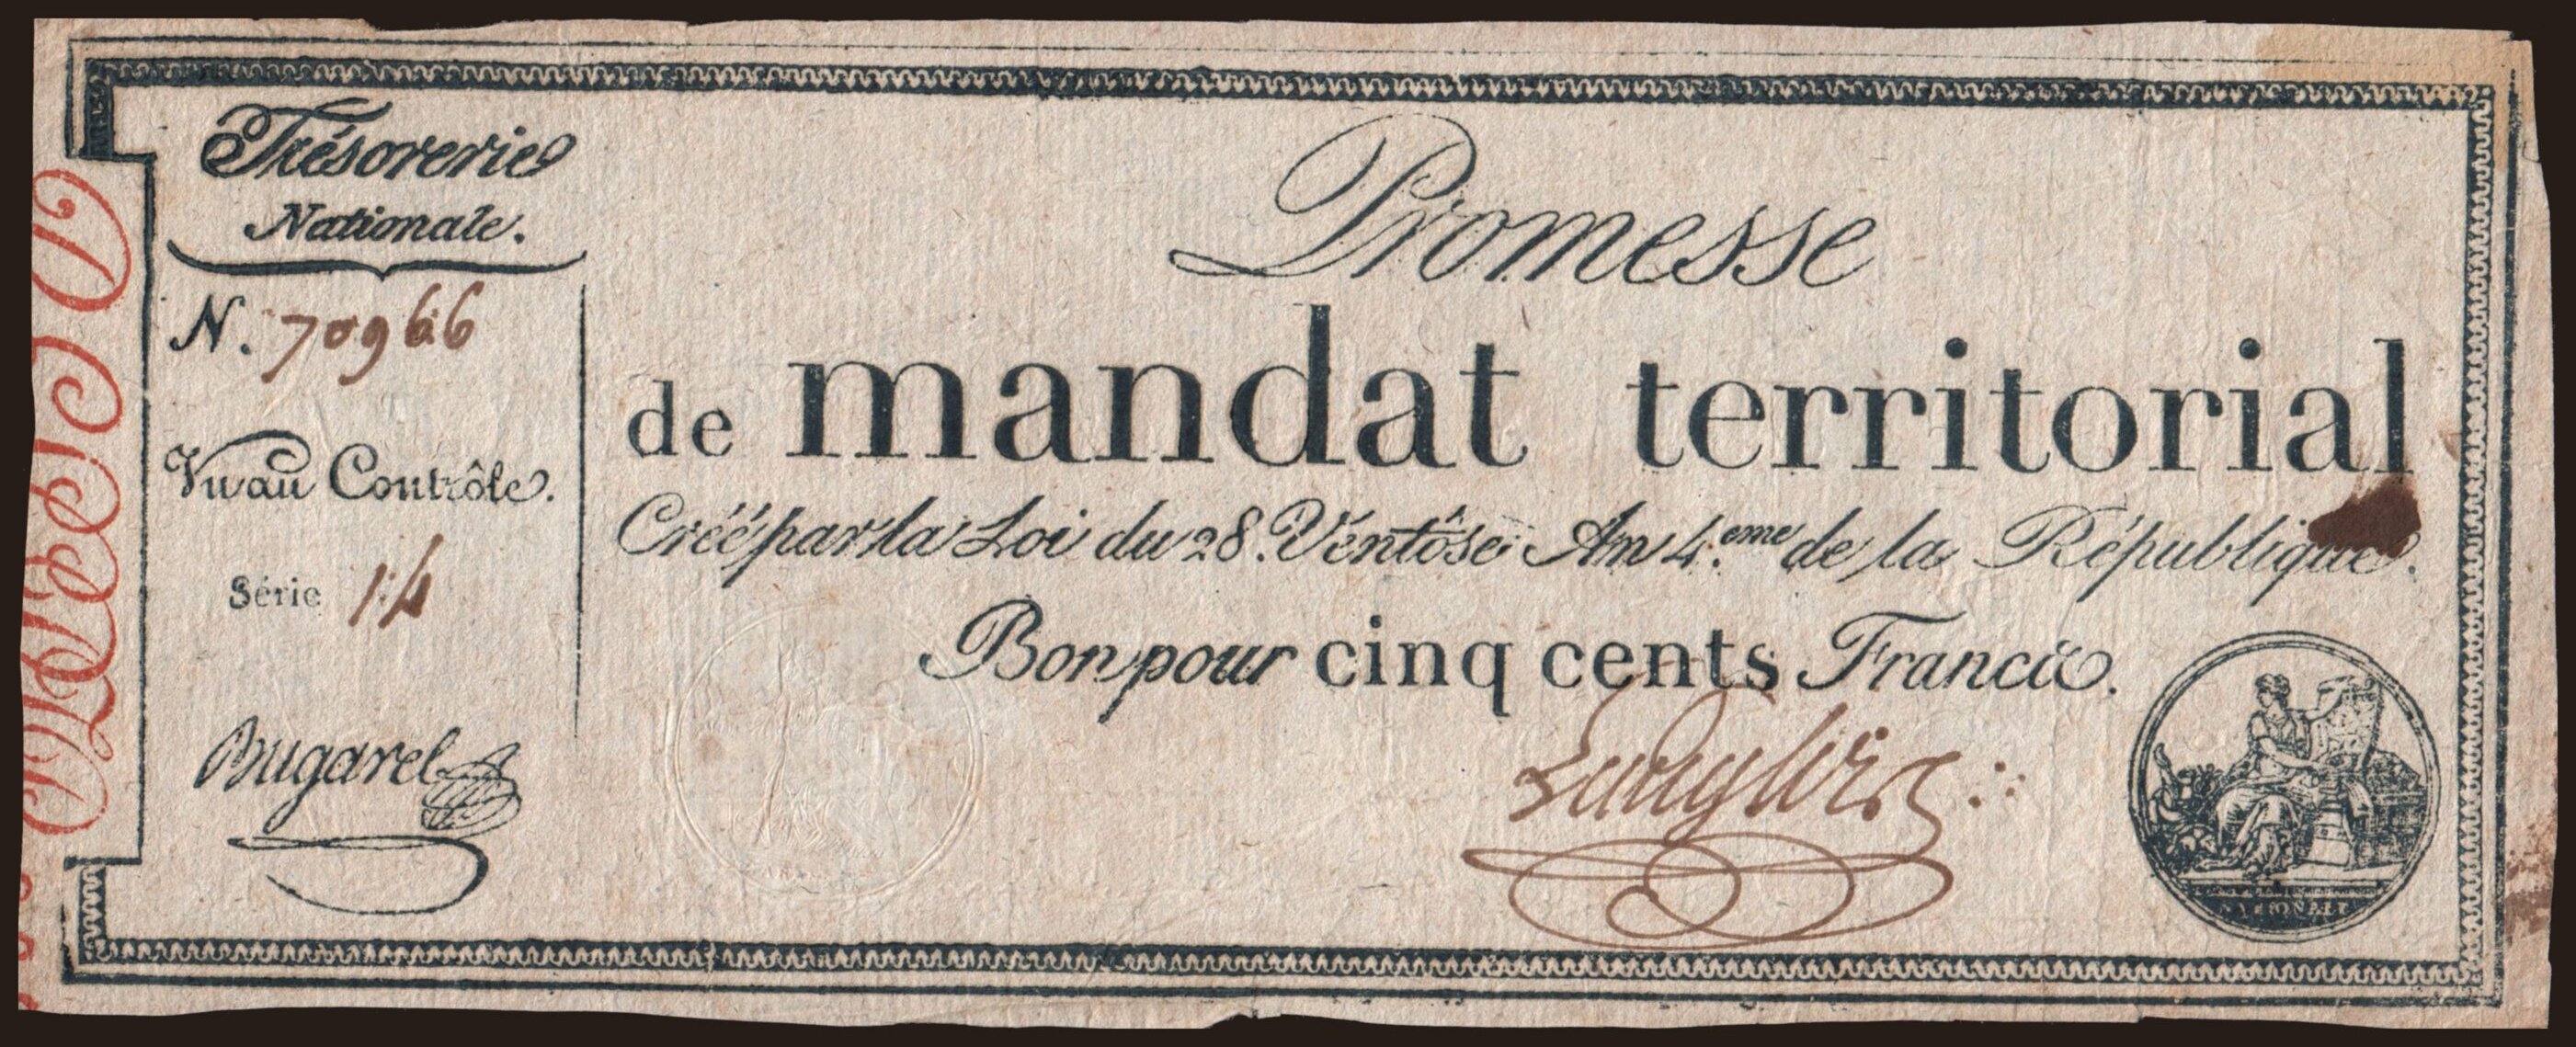 Trésorerie
Nationale.
N. 70966
Vu au Contrôle.
Série 14
Bugarel
Promesse
de mandat territorial
Créé par la Loi du 28. Ventôse An 4.eme de la République.
Bon pour cinq cents Francs.